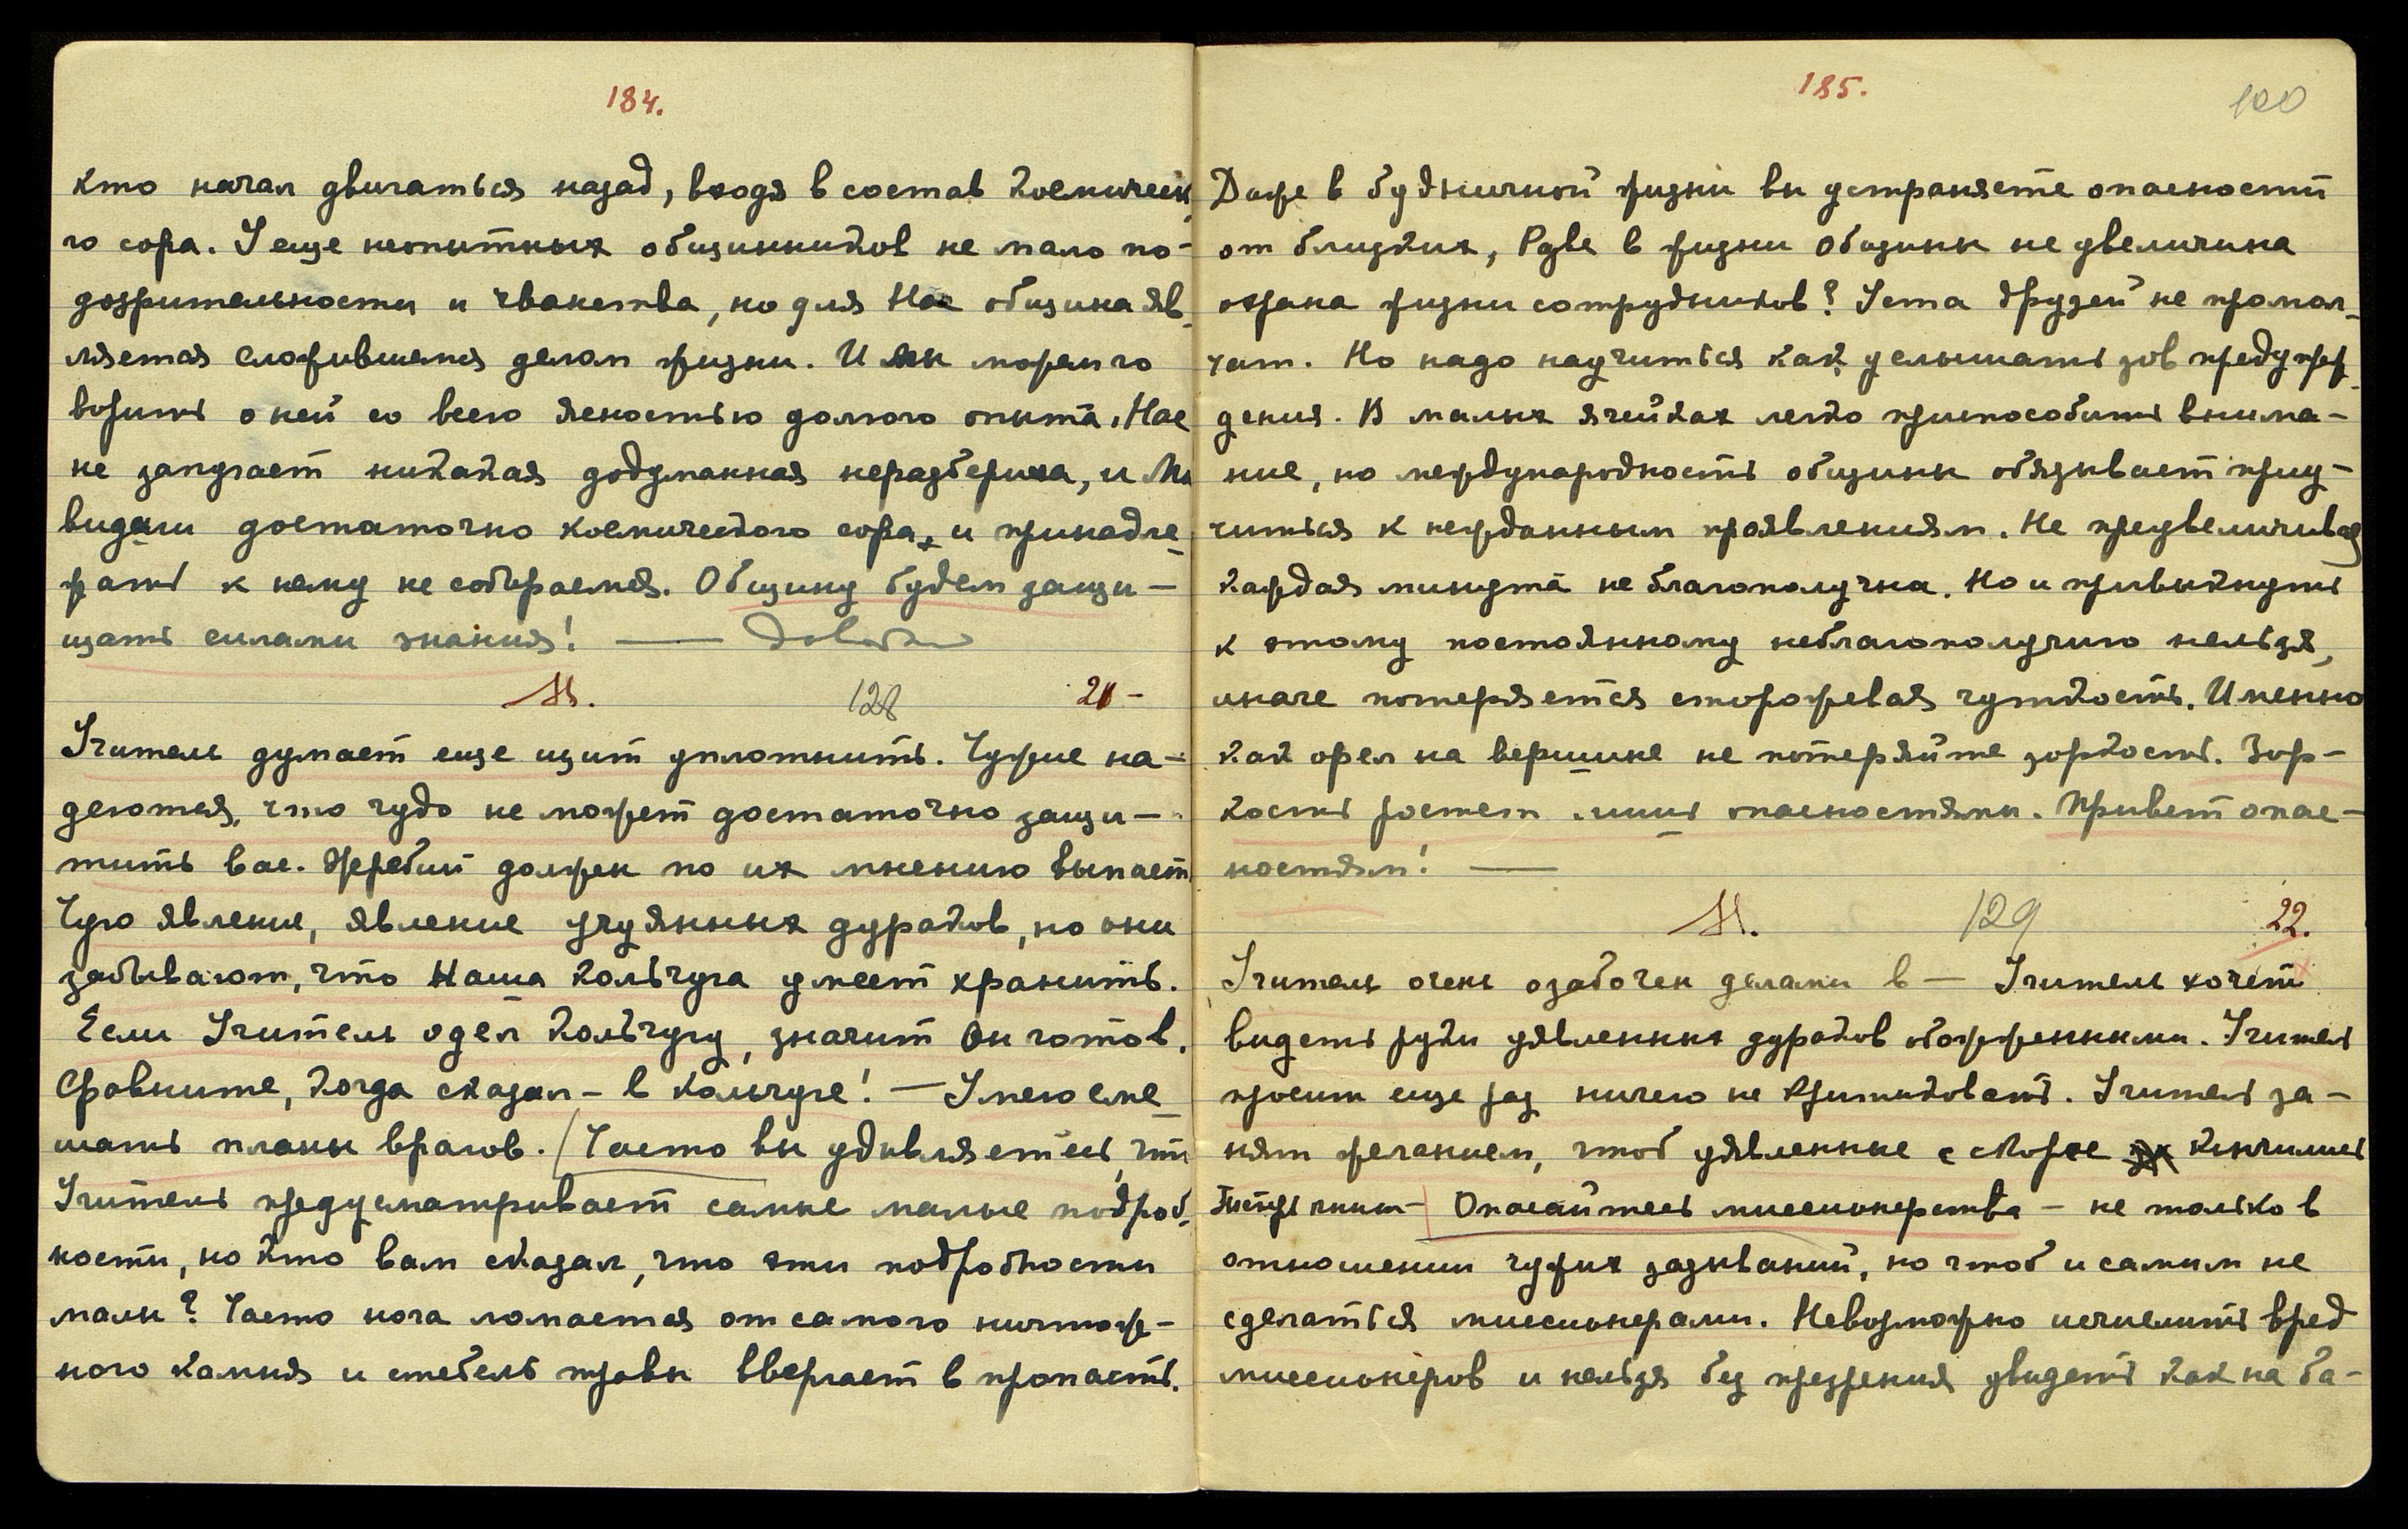 184.
кто начал двигаться назад, входя в состав космическ
го сора. У еще неопытных общинников не мало по-
дозрительности и чванства, но для Нас община яв-
ляется сложившемся делом жизни. И мы можем го
ворить о ней со всею ясностью долгого опыта. Нас
не запугает никакая додуманная неразбериха, и Мы
видали достаточно космического сора, и принадле-
жать к нему не собираемся. Общину будем защи-
щать силами знания! —
М. 128 21-
Учитель думает еще щит уплотнить. Чужие на-
деются, что чудо не может достаточно защи-
тить вас. Жребий должен по их мнению выпасть
Чую явление, явление ужаленных дураков, но они
забывают, что Наша кольчуга умеет хранить.
Если Учитель одел кольчугу, значит Он готов.
Сравните, когда сказал - в кольчуге! — Умею сме-
шать планы врагов. / Часто вы удивляетесь, что
Учитель предусматривает самые малые подроб-
ности, но кто вам сказал, что эти подробности
малы? Часто нога ломается от самого ничтож-
ного камня и стебель травы ввергает в пропасть.
185. 100
Даже в будничной жизни вы устраняете опасности
от близких, Разве в жизни Общины не увеличина
охрана жизни сотрудников? Уста друзей не промол-
чат. Но надо научиться как услышать зов предупреж-
дения. В малых ячейках легко приспособить внима-
ние, но международность общины обязывает приу-
читься к нежданным проявлениям. Не преувеличивая
каждая минута не благополучна. Но и привыкнуть
к этому постоянному неблагополучию нельзя,
иначе потеряется сторожевая чуткость. Именно
как орел на вершине не потеряйте зоркость. Зор-
кость ростет лишь опасностями. Привет опас-
ностям! —
М. 129 22.
Учитель очень озабочен делами в — Учитель хочет
видеть руки уявленных дураков обожженными. Учитель
просит еще раз ничего не критиковать. Учитель за-
нят желанием, чтоб уявленные скорее кончились
Опасайтесь миссионерства - не только в
отношении чужих зазываний, но чтоб и самим не
сделаться миссионерами. Невозможно исчислить вред
миссионеров и нельзя без презрения увидеть как на ба-